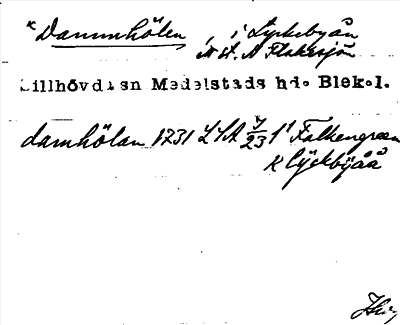 * Dammhölen, i Lyckebyån
N U. N Flakesjön
Lillhövdaen Medelstads hd. Blek.l.
damhölan 1731 LSA 7/23 1¹ Falkengreen
K lÿckbÿåå